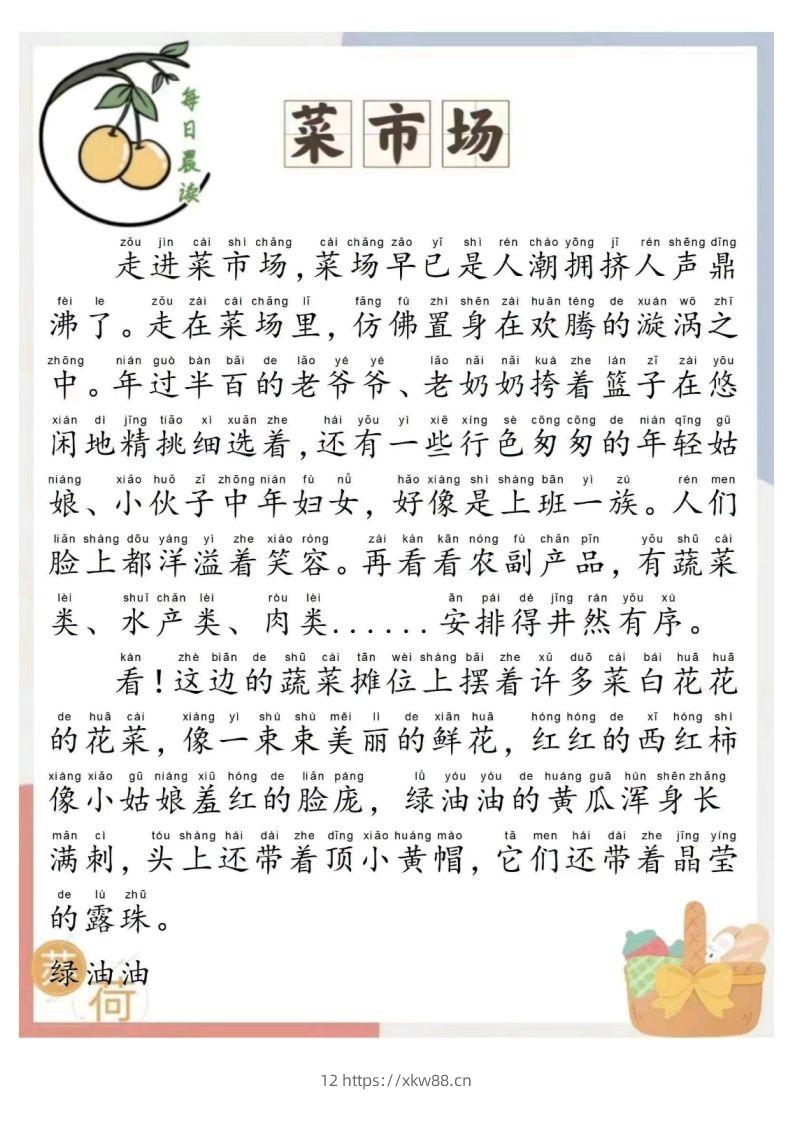 每日晨读
菜市场
zǒu jìn cài shì chǎng cài chǎng zǎo yǐ shì rén cháo yōng jǐ rén shēng dǐng
走进菜市场,菜场早已是人潮拥挤人声鼎
fèi le zǒu zài cài chǎng lǐ fǎng fú zhì shēn zài huān téng de xuán wō zhī
沸了。走在菜场里,仿佛置身在欢腾的漩涡之
zhōng nián guò bàn bǎi de lǎo yé yé lǎo nǎi nǎi kuà zhe lán zǐ zài yōu
中。年过半百的老爷爷、老奶奶挎着篮子在悠
xián dì jīng tiāo xì xuǎn zhe hái yǒu yì xiē xíng sè cōng cōng de nián qīng gū
闲地精挑细选着,还有一些行色匆匆的年轻姑
niáng xiǎo huǒ zǐ zhōng nián fù nǚ hǎo xiàng shì shàng bān yì zú rén men
娘、小伙子中年妇女,好像是上班一族。人们
liǎn shàng dōu yáng yì zhe xiào róng zài kàn kān nóng fù chǎn pǐn yǒu shū cài
脸上都洋溢着笑容。再看看农副产品,有蔬菜
lèi shuǐ chǎn lèi ròu lèi ān pái dé jǐng rán yǒu xù
类、水产类、肉类......安排得井然有序。
kàn zhè biān de shū cài tān wèi shàng bǎi zhe xǔ duō cài bái huā huā
看!这边的蔬菜摊位上摆着许多菜白花花
de huā cài xiàng yì shù shù měi lì de xiān huā hóng hóng de xī hóng shì
的花菜,像一束束美丽的鲜花,红红的西红柿
xiàng xiǎo gū niáng xiū hóng de liǎn páng lǜ yóu yóu de huáng guā hún shēn zhǎng
像小姑娘羞红的脸庞,绿油油的黄瓜浑身长
mǎn cì tóu shàng hái dài zhe dǐng xiǎo huáng mào tā men hái dài zhe jīng yíng
满刺,头上还带着顶小黄帽,它们还带着晶莹
de lù zhū
的露珠。
绿油油
荷
12 https://xkw88.cn